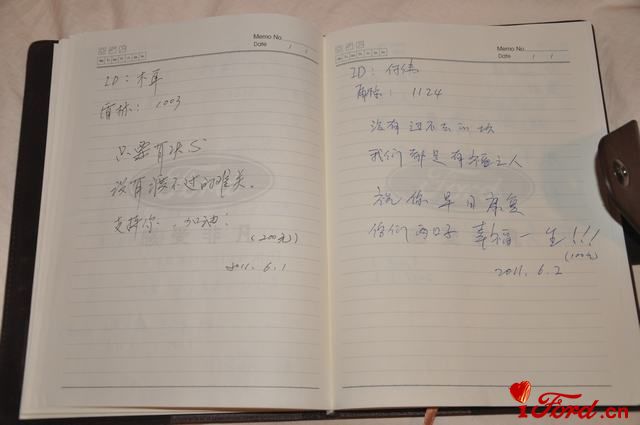 Memo No.
Date / /
ID: 木耳
盾标: 1003
只要有决心
没有渡不过的难关。
支持你、加油!
(200元)
2011.6.1
Memo No.
Date / /
ID: 何伟
盾标: 1124
没有过不去的坎
我们都是有福之人
祝你早日康复
你们两口子幸福一生!!!
(100元)
2011.6.2
iFord.cn